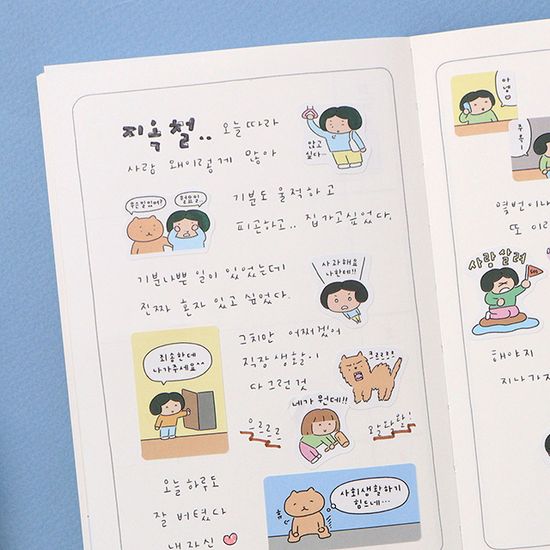 지옥철.. 오늘따라
앉고
싶다..
사람 왜이렇게 많아
무슨일있어?
월요일
기분도 울적하고
피곤하고.. 집 가고싶었다.
사과해요
나한테!!
기분나쁜 일이 있었는데
진짜 혼자 있고 싶었다.
죄송한데
나가주세요..
그치만 어쩌겠어
직장생활이
다 그런 것
크르르릉
네가 뭔데!!
으르르르
왈왈왈!
오늘 하루도
잘 버텼다
내 자신
사회생활하기
힘드네...
흠
안녕
몇번이나
또 이
사람살려
SOS
해야지
지나가